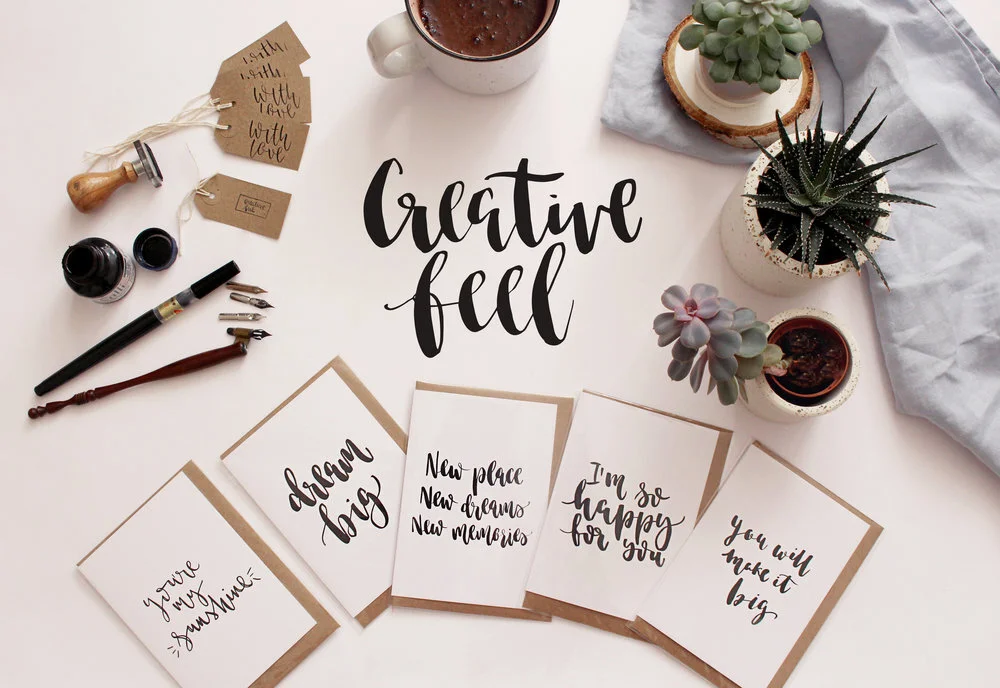 with
with
with
love
with
love
Creative
feel
Creative
feel
you're
my
sunshine
dream
big
New place
New dreams
New memories
I'm so
happy
for you
you will
make it
big